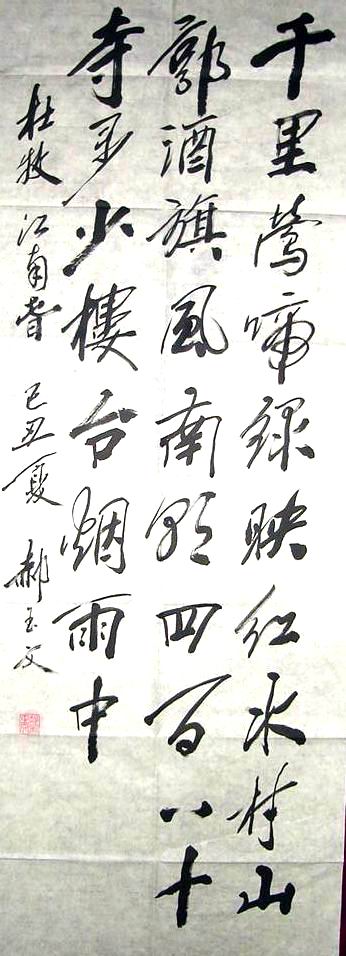 千里莺啼绿映红水村山
郭酒旗风南朝四百八十
寺多少樓台烟雨中
杜牧 江南春 己丑夏 郝玉文